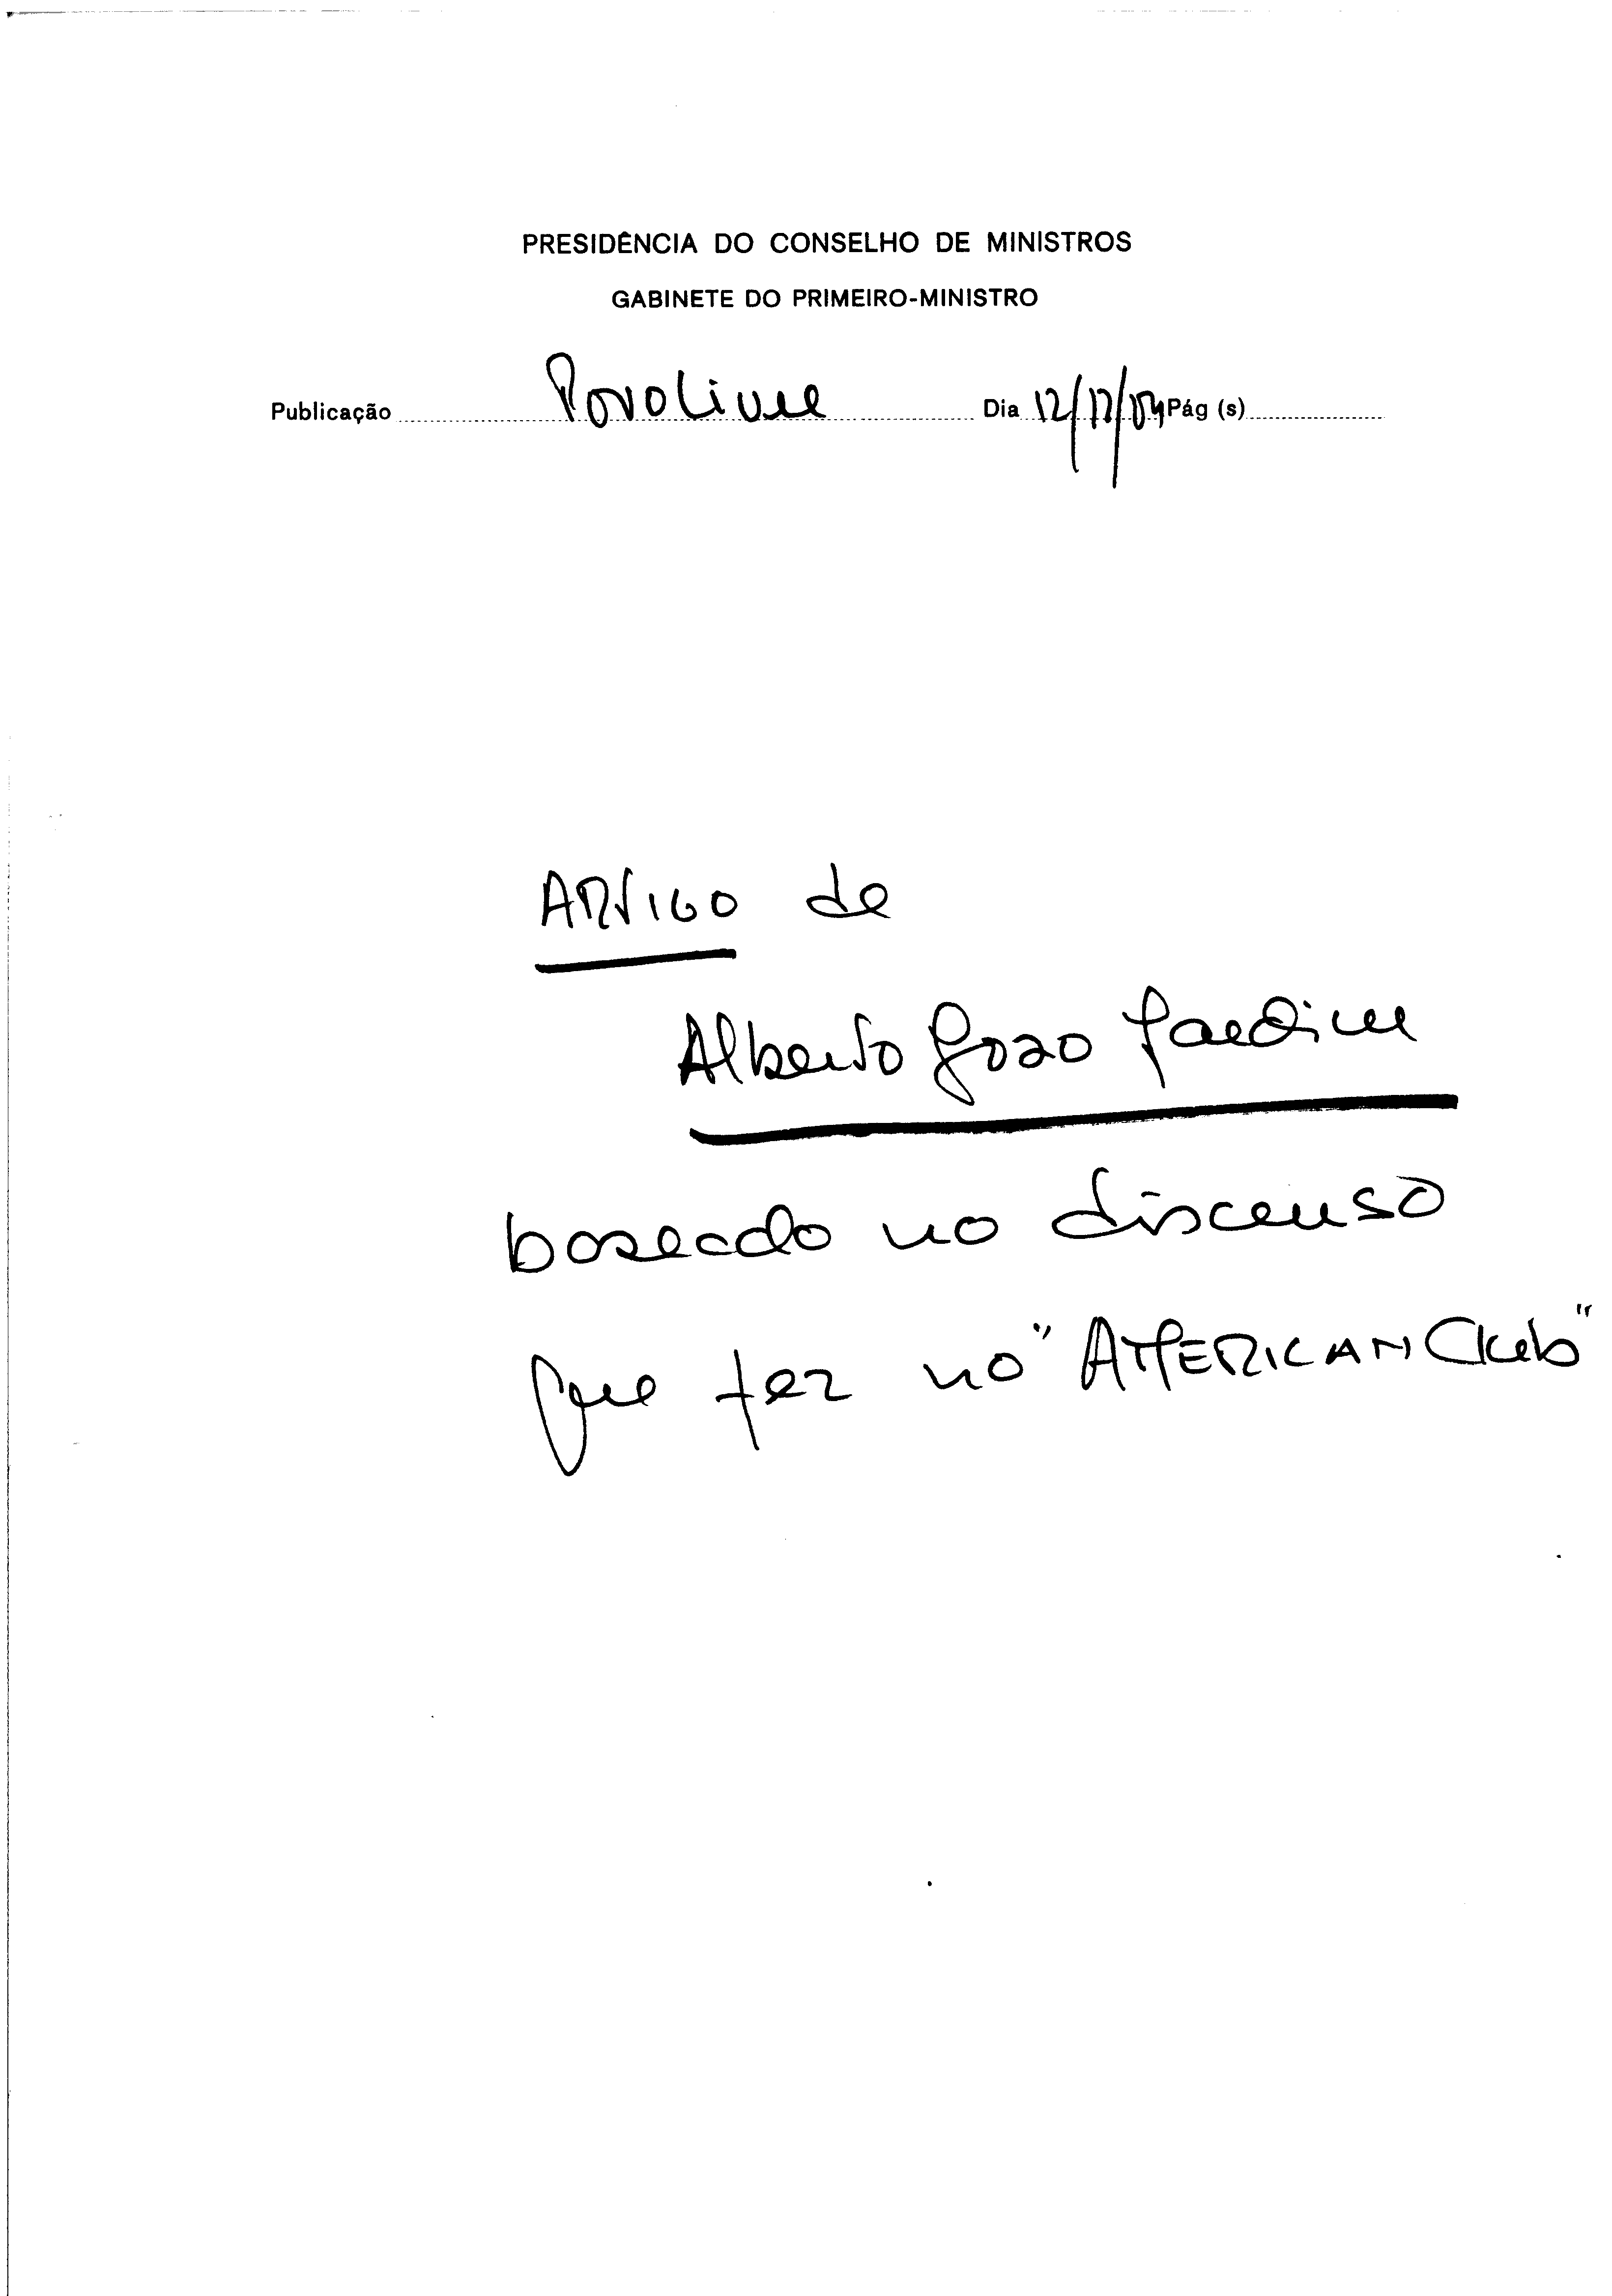 PRESIDÊNCIA DO CONSELHO DE MINISTROS
GABINETE DO PRIMEIRO-MINISTRO
Publicação Povo Livre Dia Pág (s)
ARTIGO de
Alberto João Jardim
baseado no discurso
que fez no "AMERICAN Club"